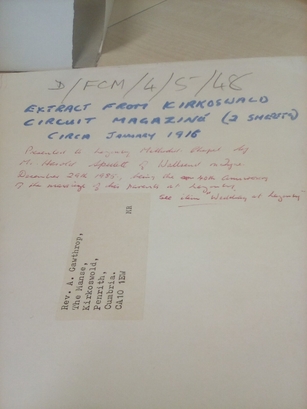 D/FCM/4/5/48
EXTRACT FROM KIRKOSWALD
CIRCUIT MAGAZINE (2 SHEETS)
CIRCA JANUARY 1916
Presented to Lazonby Methodist Chapel by
M. Harold of Wallsend on Tyne
December 24th being the Anniversary
of the marriage of her Parents at Lazonby
See item Wedding at Lazonby
RR
Rev. A. Gawthrop,
The Manse,
Kirkoswald,
Penrith,
Cumbria.
CA10 1EW